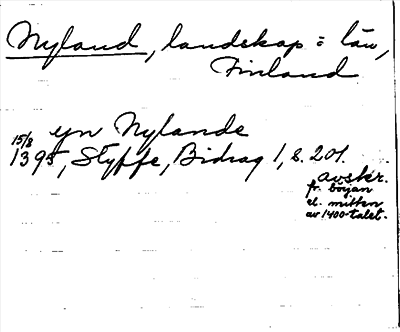 Nyland, landskap o län,
Finland
yn Nylande
15/8
1395, Styffe, Bidrag 1, s. 201.
avskr.
fr. början
el. mitten
av 1400-talet.